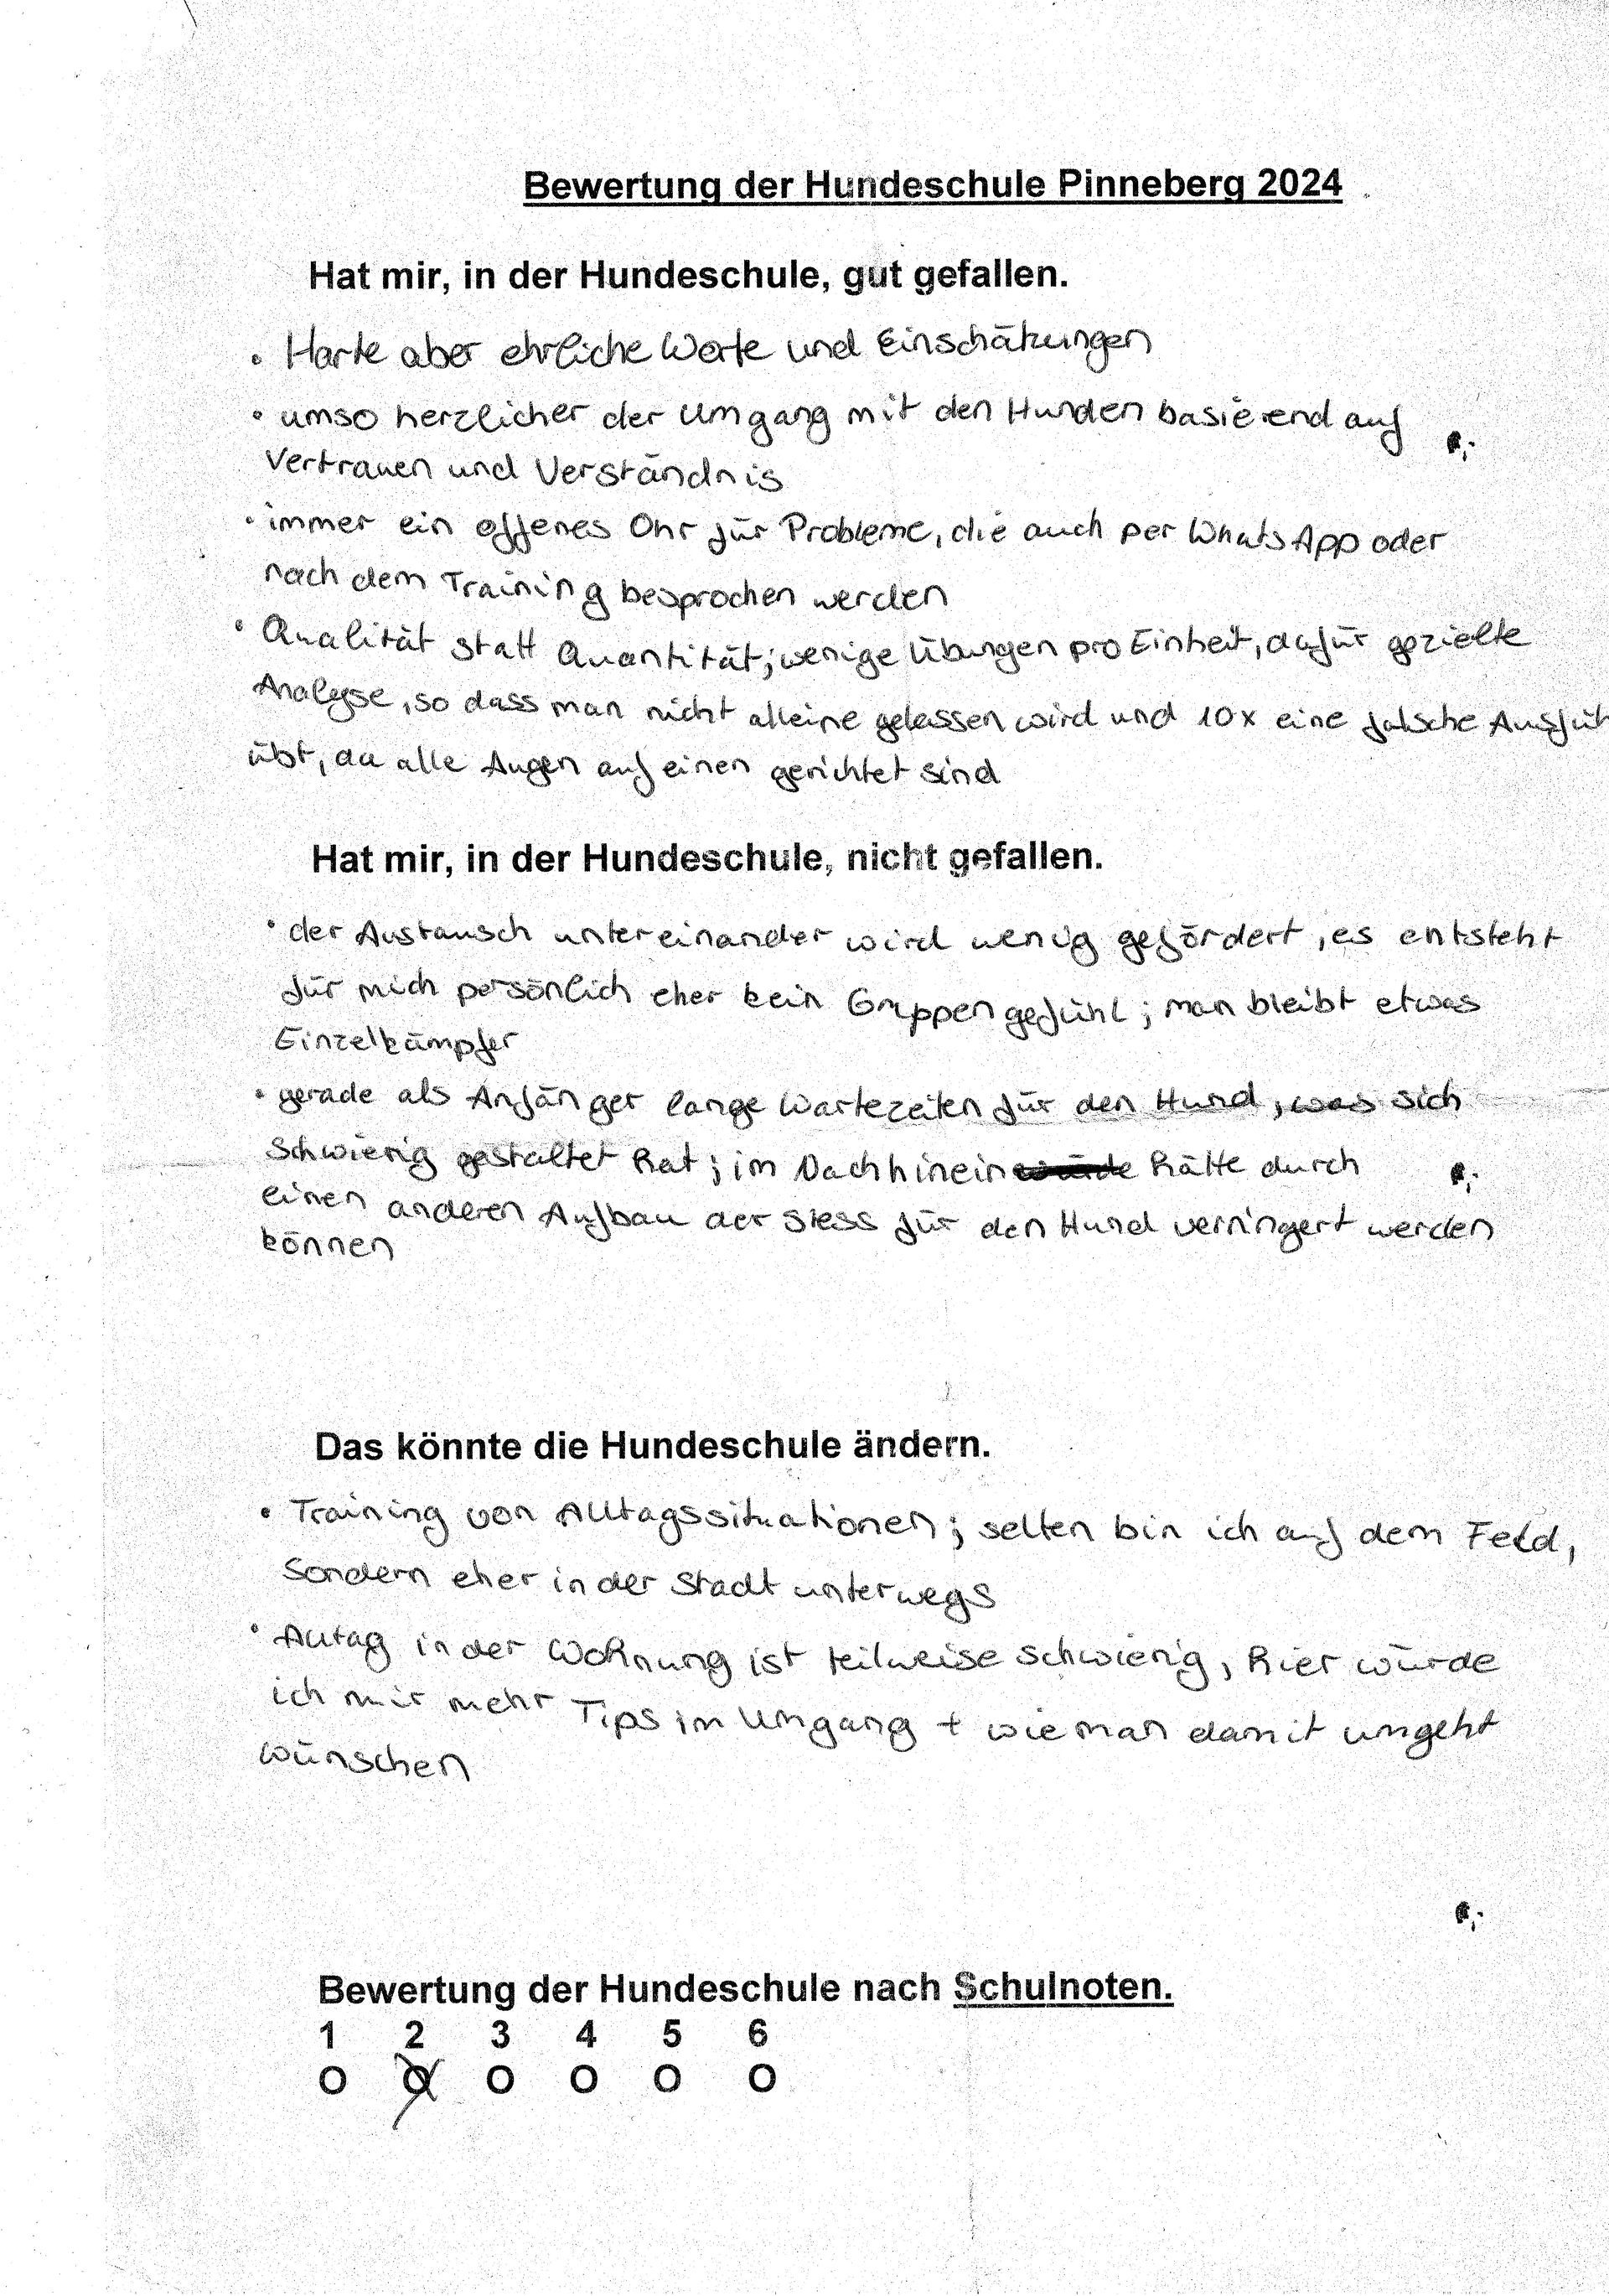 Bewertung der Hundeschule Pinneberg 2024
Hat mir, in der Hundeschule, gut gefallen.
• Harte aber ehrliche Worte und Einschätzungen
• umso herzlicher der Umgang mit den Hunden basierend auf
Vertrauen und Verständnis
• immer ein offenes Ohr für Probleme, die auch per WhatsApp oder
nach dem Training besprochen werden
• Qualität statt Quantität; wenige Übungen pro Einheit, dafür gezielte
Analyse, so dass man nicht alleine gelassen wird und 10x eine falsche Ausfüh
übt, da alle Augen auf einen gerichtet sind
Hat mir, in der Hundeschule, nicht gefallen.
• der Austausch untereinander wird wenig gefördert, es entsteht
für mich persönlich eher kein Gruppengefühl; man bleibt etwas
Einzelkämpfer
• gerade als Anfänger lange Wartezeiten für den Hund, was sich
schwierig gestaltet hat; im Nachhinein hätte durch
einen anderen Aufbau der Stess für den Hund verringert werden
können
Das könnte die Hundeschule ändern.
• Training von Alltagssituationen; selten bin ich auf dem Feld,
sondern eher in der Stadt unterwegs
• Alltag in der Wohnung ist teilweise schwierig, hier würde
ich mir mehr Tips im Umgang + wie man damit umgeht
wünschen
Bewertung der Hundeschule nach Schulnoten.
1 2 3 4 5 6
O O O O O O